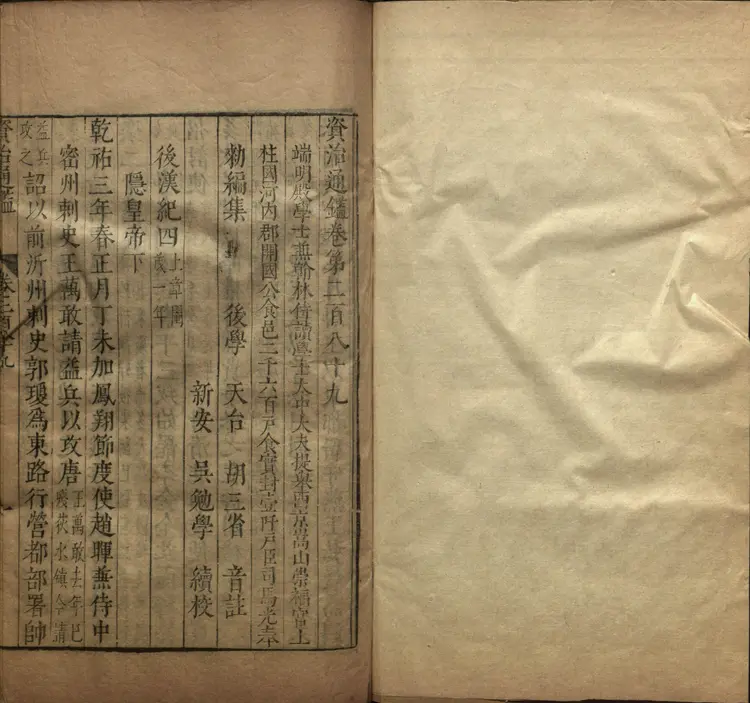 資治通鑑卷第二百八十九
端明殿學士兼翰林侍讀學士太中大夫提舉西京嵩山崇福宮上
柱國河內郡開國公食邑二千六百戶食實封壹阡戶臣司馬光奉
勑編集 後學 天台 胡三省 音註
新安 吳勉學 續校
後漢紀四 上章閹茂一年
隱皇帝下
乾祐三年春正月丁未加鳳翔節度使趙暉兼侍中
密州刺史王萬敢請益兵以攻唐 王萬敢去年已殘荻水鎮今請
益兵攻之 詔以前沂州刺史郭瓊爲東路行營都部署帥
資治通鑑 卷二百八十九